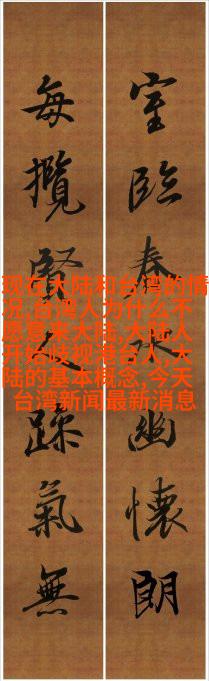 室臨春水幽懷朗
每攬賢人躁氣無
现在大陆和台湾的情
况,台湾人为什么不
愿意来大陆,大陆人
开始歧视港台人,大
陆的基本概念,今天
台湾新闻最新消息